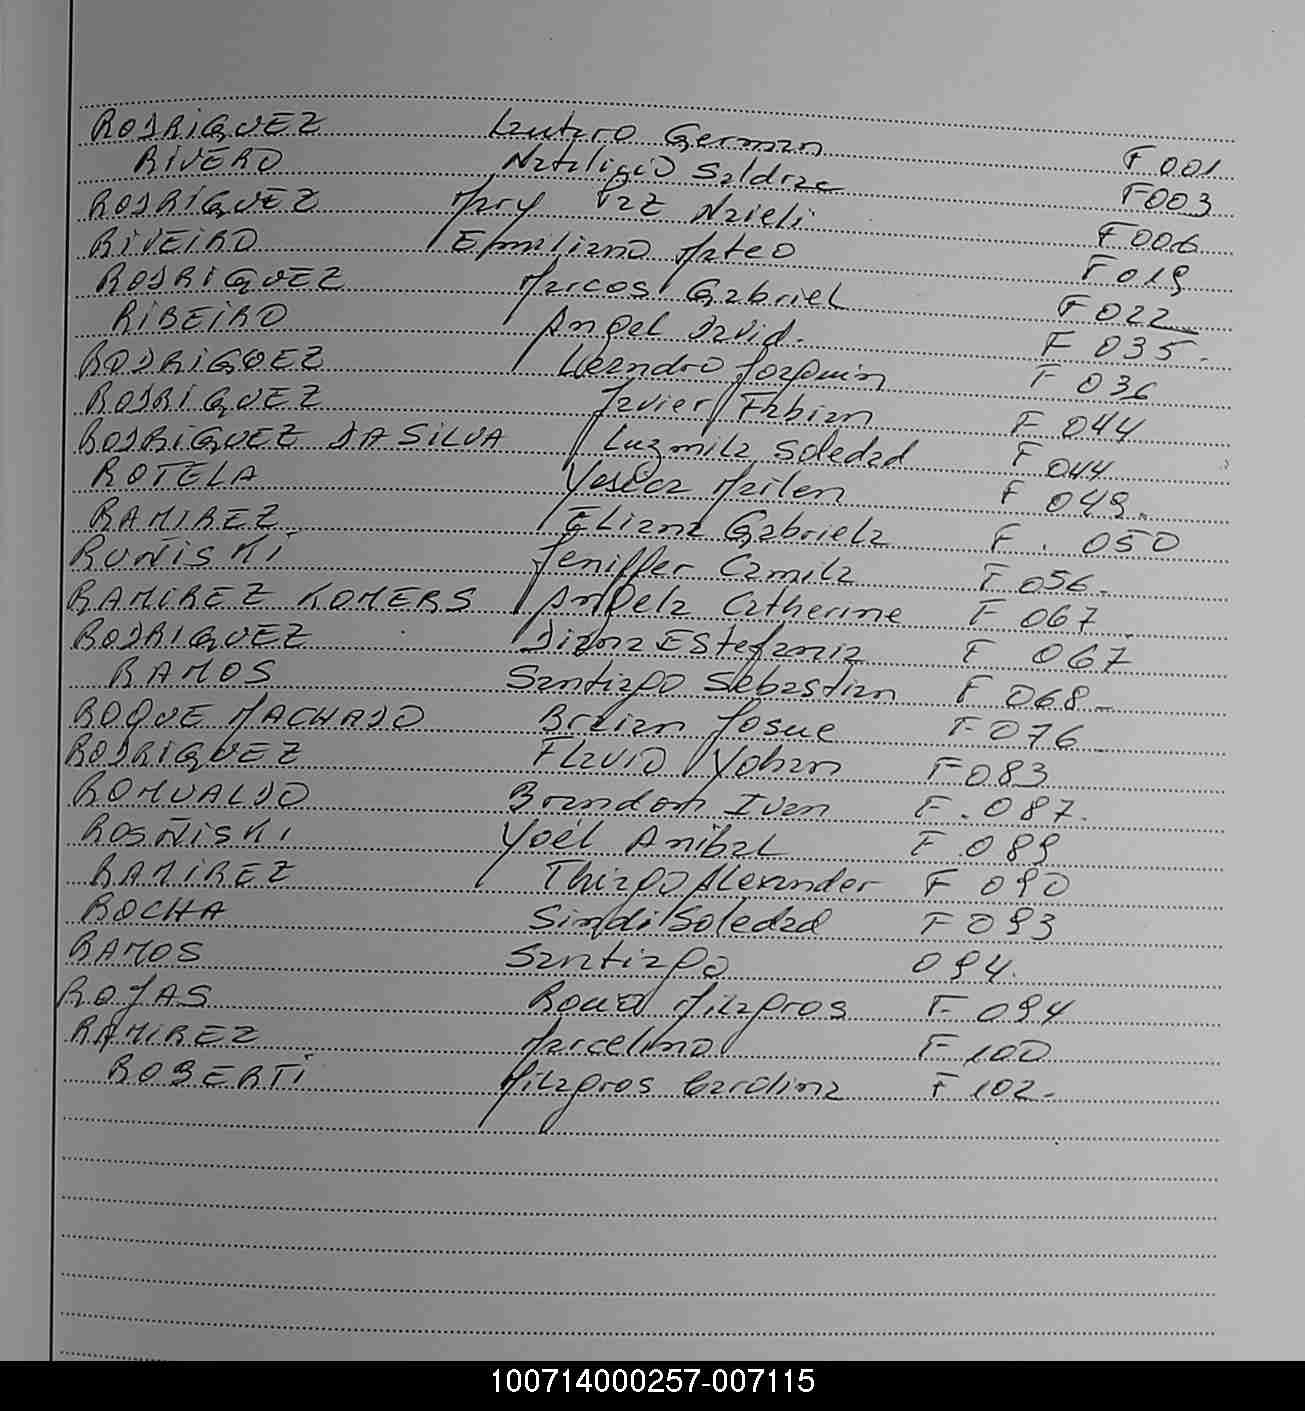 RODRIGUEZ Lautaro German F 001
RIVERO Natalicio Saldrac F003
RODRIGUEZ Mary Paz Naieli F006
RIVEIRO Emiliano Mateo F019
RODRIGUEZ Marcos Gabriel F022
RIBEIRO Angel David. F 035.
RODRIGUEZ Leandro Joaquin F 036
RODRIGUEZ Javier Fabian F 044
RODRIGUEZ DA SILVA Luzmila Soledad F 044
ROTELA Mailen F 049.
RAMIREZ Eliana Gabriela F. 050
RUÑISKI Jeniffer Camila F 056.
RAMIREZ KOMERS Angela Catherine F 067
RODRIGUEZ Diana EStefania F 067
RAMOS Santiago Sebastian F 068
ROQUE MACHADO Braian Josue F 076
RODRIGUEZ Flavio Yohan F083
ROMUALDO Brandon Ivan F. 087.
ROSÑISKI Yoél Anibal F 089
RAMIREZ Thiago Alexander F 090
ROCHA Sindi Soledad F 093
RAMOS Santiago 094.
ROJAS Milagros F 094
RAMIREZ Marcelino F 100
ROBERTI Milagros Carolina F 102.
100714000257-007115